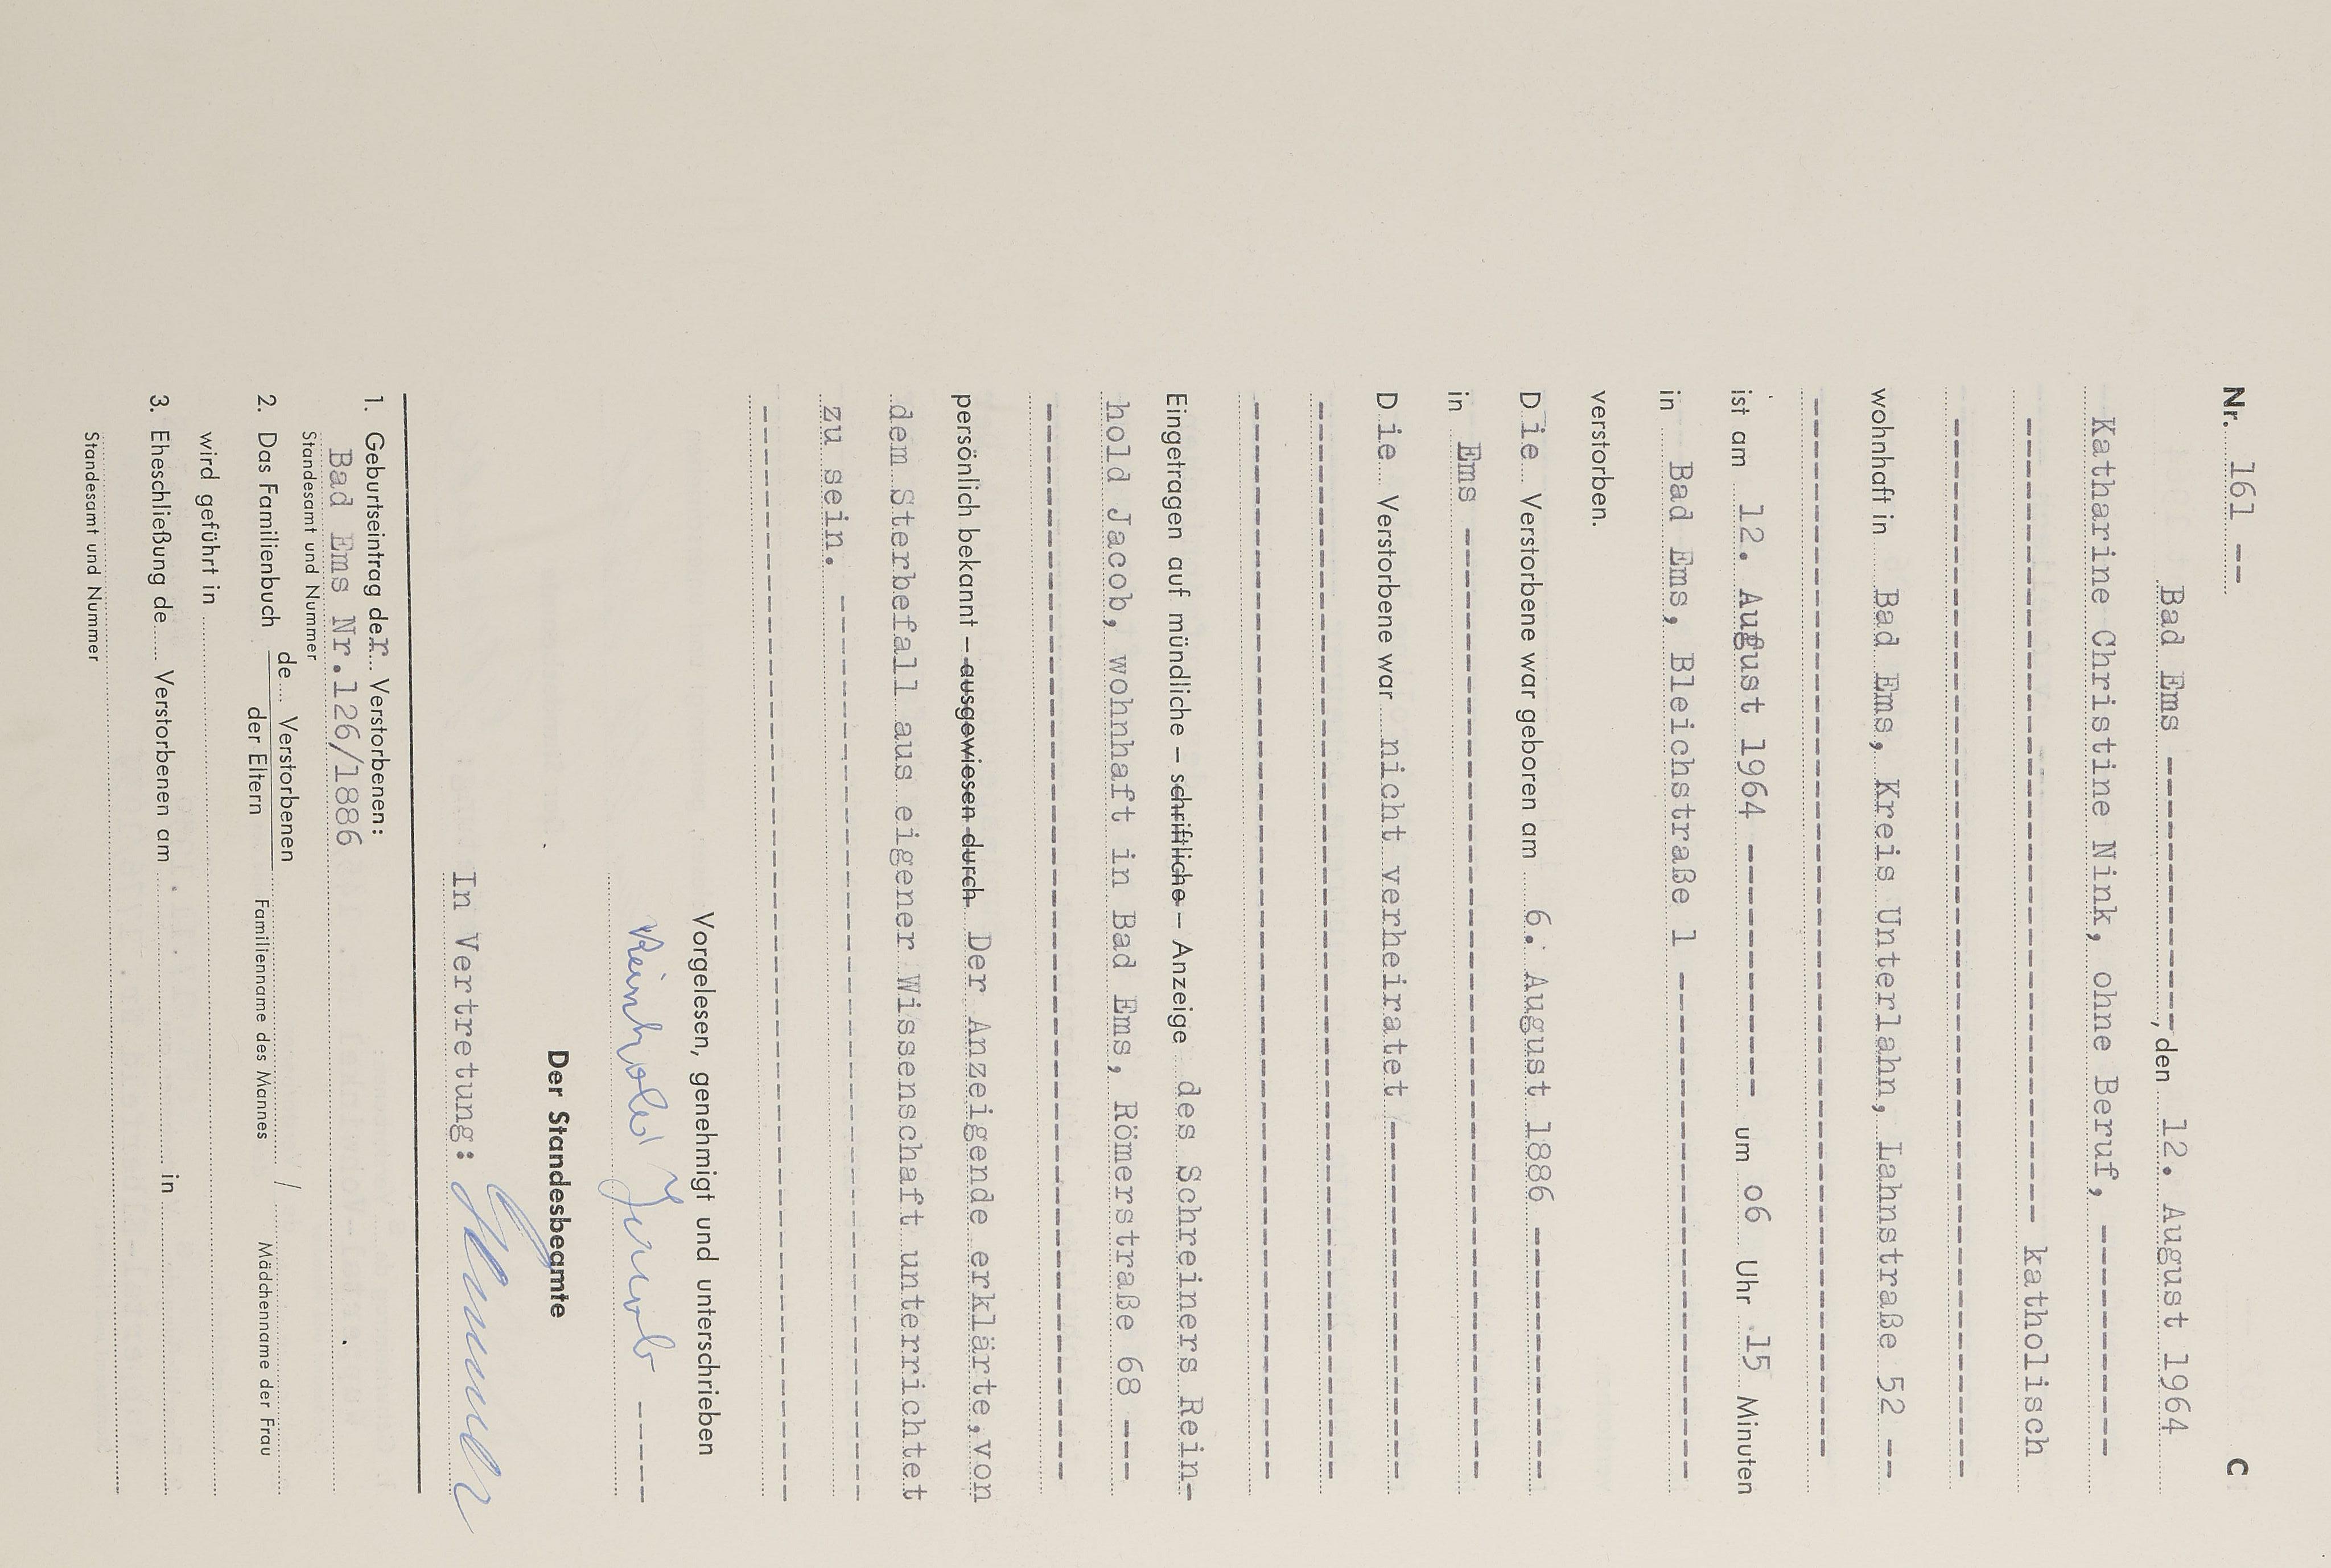 Nr. 161 -- C
Bad Ems ----------------, den 12. August 1964
Katharine Christine Nink, ohne Beruf, ------------
------------------------------------------- katholisch
----------------------------------------------------------
wohnhaft in Bad Ems, Kreis Unterlahn, Lahnstraße 52 --
----------------------------------------------------------
ist am 12. August 1964 -------------- um 06 Uhr 15 Minuten
in Bad Ems, Bleichstraße 1 ---------------------------
verstorben.
Die Verstorbene war geboren am 6. August 1886 -------------
in Ems ---------------------------------------------------
Die Verstorbene war nicht verheiratet -------------------
----------------------------------------------------------
----------------------------------------------------------
Eingetragen auf mündliche – schriftliche – Anzeige des Schreiners Rein-
hold Jacob, wohnhaft in Bad Ems, Römerstraße 68 ---
----------------------------------------------------------
persönlich bekannt – ausgewiesen durch Der Anzeigende erklärte,von
dem Sterbefall aus eigener Wissenschaft unterrichtet
zu sein. -------------------------------------------------
----------------------------------------------------------
Vorgelesen, genehmigt und unterschrieben
Reinhold Jacob -----
Der Standesbeamte
In Vertretung:
1. Geburtseintrag der Verstorbenen:
Standesamt und Nummer
Bad Ems Nr.126/1886
2. Das Familienbuch de Verstorbenen
der Eltern
Familienname des Mannes / Mädchenname der Frau
wird geführt in
3. Eheschließung de Verstorbenen am in
Standesamt und Nummer